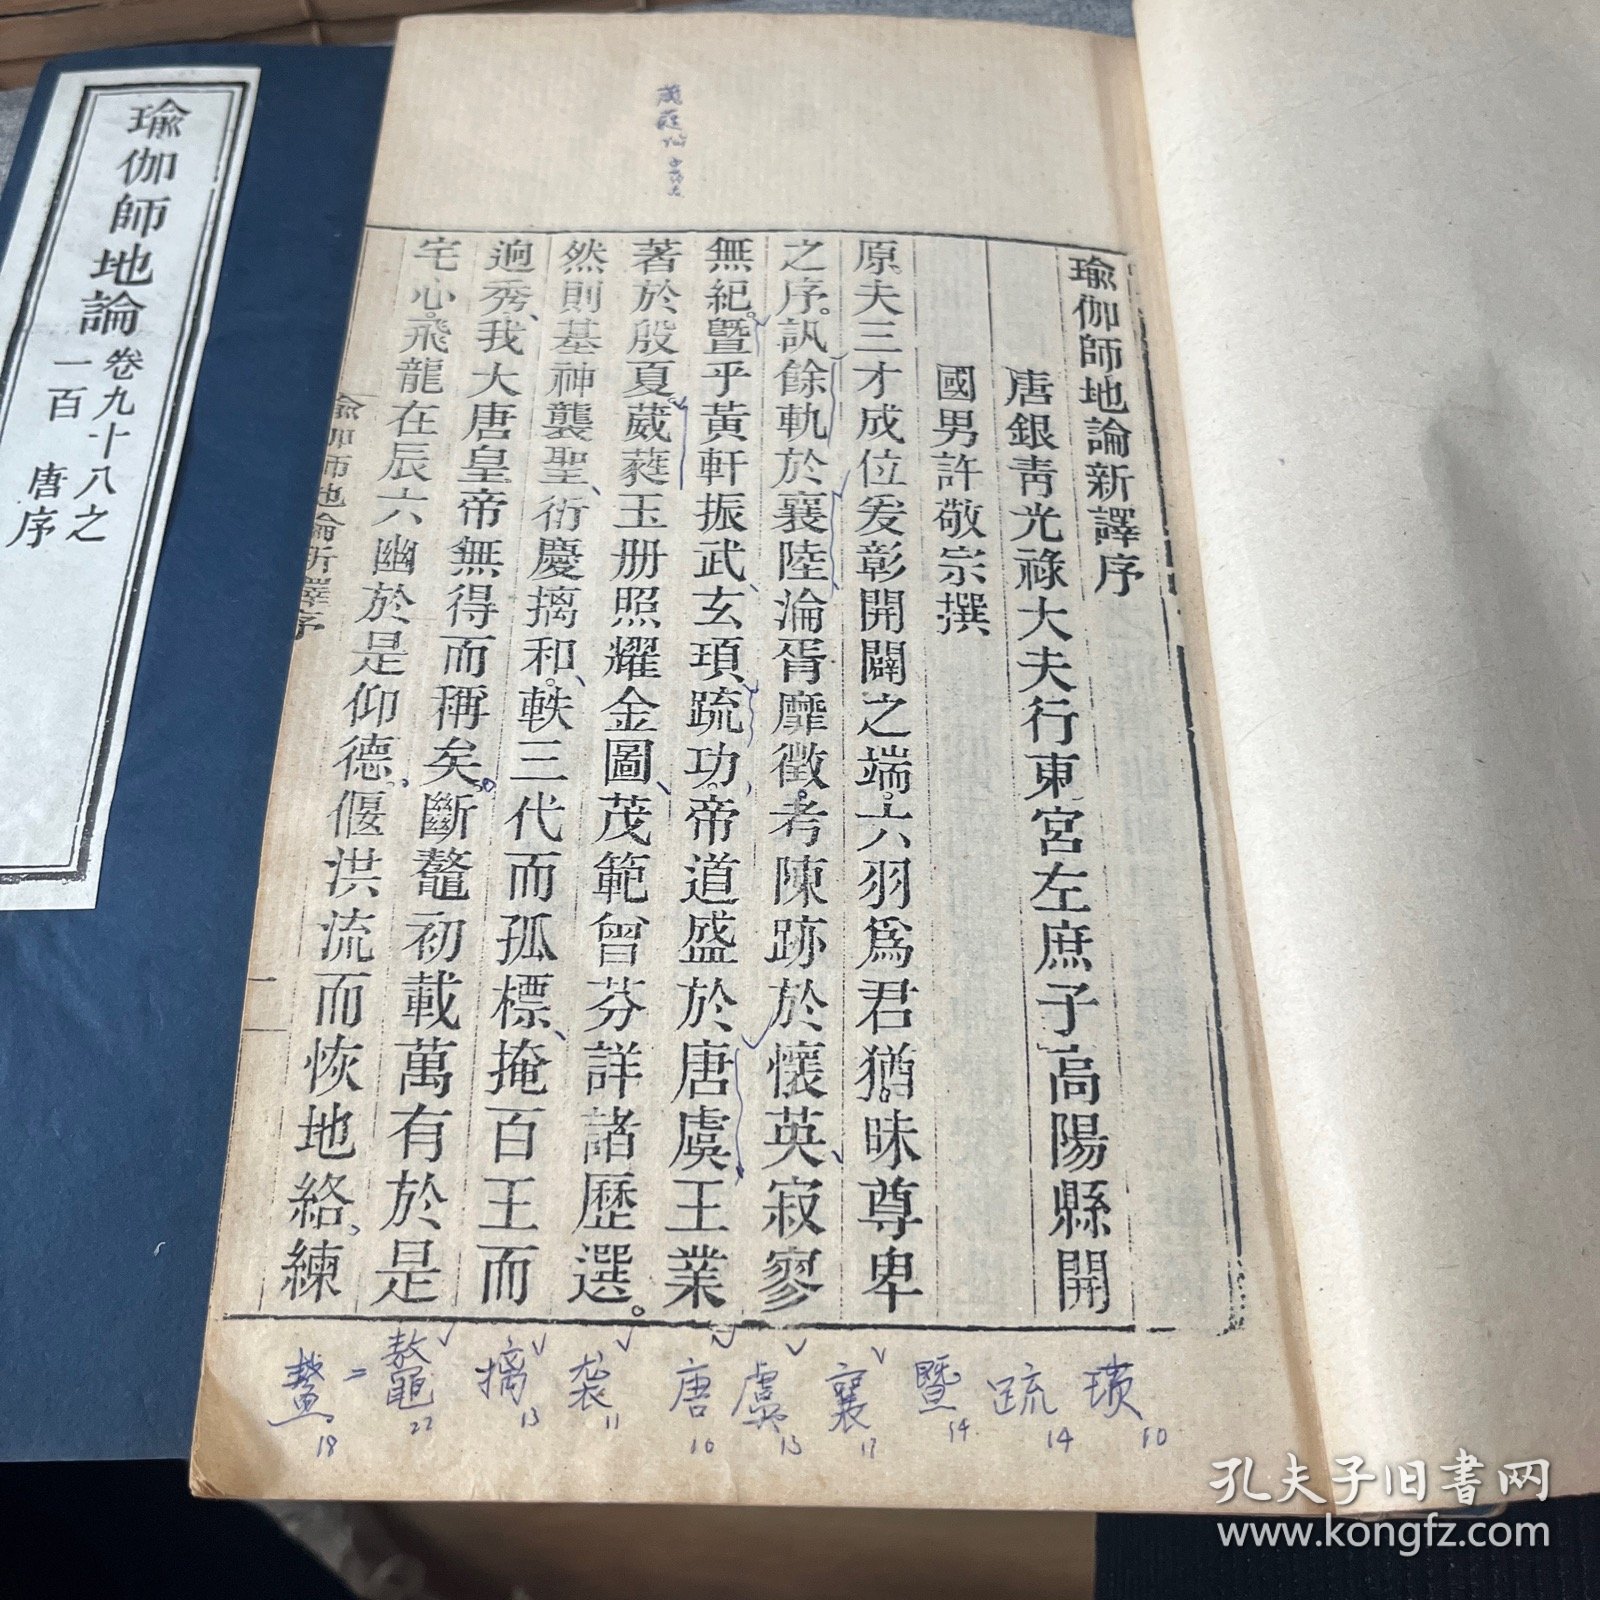 瑜伽師地論新譯序
唐銀靑光祿大夫行東宮左庶子高陽縣開
國男許敬宗撰
原夫三才成位爰彰開闢之端六羽爲君猶昧尊卑
之序訊餘軌於襄陸淪胥靡徵考陳跡於懷英寂寥
無紀曁乎黃軒振武玄頊䟽功帝道盛於唐虞王業
著於殷夏葳蕤玉册照耀金圖茂範曾芬詳諸歷選
然則基神襲聖衘慶摛和軼三代而孤標掩百王而
逈秀我大唐皇帝無得而稱矣斷鼇初載萬有於是
宅心飛龍在辰六幽於是仰德偃洪流而恢地絡練
瑜伽師地論新譯序
一
瑜伽師地論
卷九十八之
一百 唐序
頊 10
䟽 14
曁 14
襄 17
虞 13
唐 10
袭 11
摛 13
鼇 22
= 鳌 18
孔夫子旧书网
www.kongfz.com